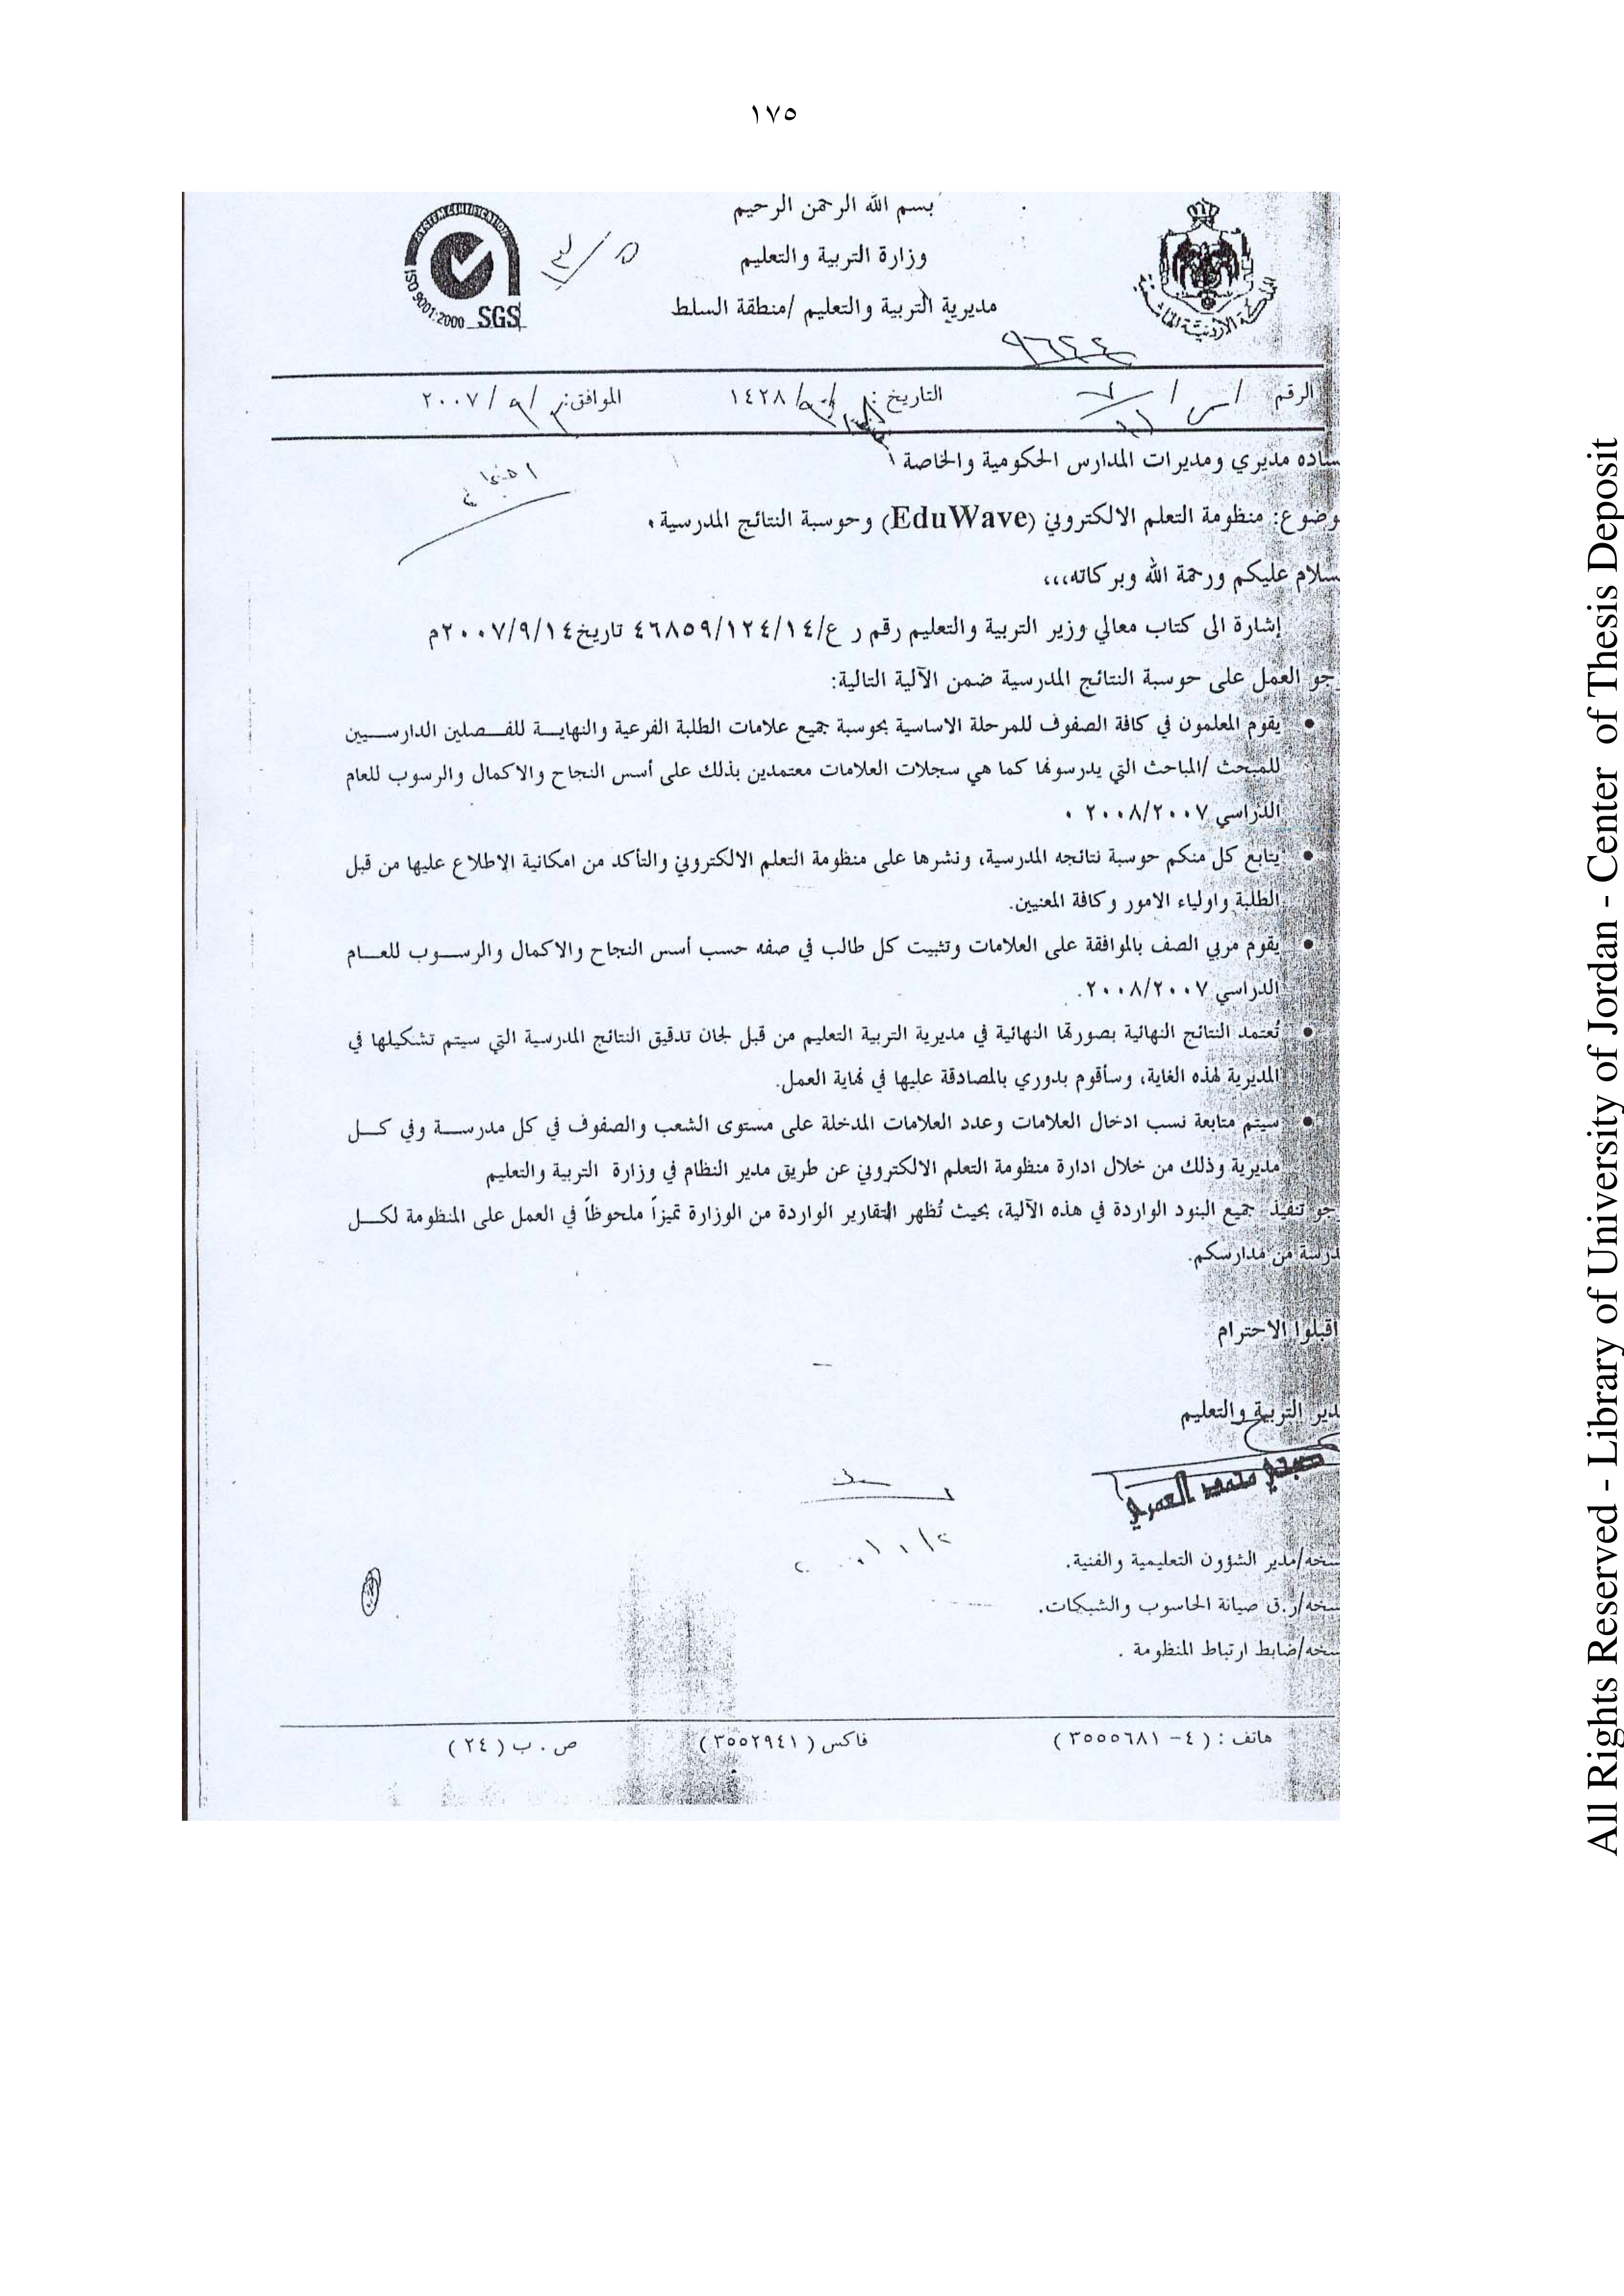 ١٧٥
بسم الله الرحمن الرحيم
وزارة التربية والتعليم
مديرية التربية والتعليم /منطقة السلط
SYSTEM CERTIFICATION
ISO 9001:2000 SGS
المملكة الأردنية الهاشمية
٩٦٤٤
الرقم / س /
التاريخ : ١٤٢٨/٩/
الموافق: / ٩ / ٢٠٠٧
ساده مديري ومديرات المدارس الحكومية والخاصة
وضوع: منظومة التعلم الالكتروني (EduWave) وحوسبة النتائج المدرسية.
سلام عليكم ورحمة الله وبركاته،،،
إشارة الى كتاب معالي وزير التربية والتعليم رقم ر ع/٤٦٨٥٩/١٢٤/١٤ تاريخ٢٠٠٧/٩/١٤م
جو العمل على حوسبة النتائج المدرسية ضمن الآلية التالية:
• يقوم المعلمون في كافة الصفوف للمرحلة الاساسية بحوسبة جميع علامات الطلبة الفرعية والنهايـــة للفـــصلين الدارســـيين
للمبحث /المباحث التي يدرسونها كما هي سجلات العلامات معتمدين بذلك على أسس النجاح والاكمال والرسوب للعام
الدراسي ٢٠٠٨/٢٠٠٧ .
• يتابع كل منكم حوسبة نتائجه المدرسية، ونشرها على منظومة التعلم الالكتروني والتأكد من امكانية الإطلاع عليها من قبل
الطلبة واولياء الامور وكافة المعنيين.
• يقوم مربي الصف بالموافقة على العلامات وتثبيت كل طالب في صفه حسب أسس النجاح والاكمال والرســـوب للعـــام
الدراسي ٢٠٠٨/٢٠٠٧.
• تُعتمد النتائج النهائية بصورتها النهائية في مديرية التربية التعليم من قبل لجان تدقيق النتائج المدرسية التي سيتم تشكيلها في
المديرية لهذه الغاية، وسأقوم بدوري بالمصادقة عليها في نهاية العمل.
• سيتم متابعة نسب ادخال العلامات وعدد العلامات المدخلة على مستوى الشعب والصفوف في كل مدرســـة وفي كـــل
مديرية وذلك من خلال ادارة منظومة التعلم الالكتروني عن طريق مدير النظام في وزارة التربية والتعليم
جو تنفيذ جميع البنود الواردة في هذه الآلية، بحيث تُظهر التقارير الواردة من الوزارة تميزاً ملحوظاً في العمل على المنظومة لكـــل
درسة من مدارسكم.
اقبلوا الاحترام
دير التربية والتعليم
صبحي محمد العمري
سخه/مدير الشؤون التعليمية والفنية.
سخه/ر.ق صيانة الحاسوب والشبكات.
سخه/ضابط ارتباط المنظومة .
هاتف : ( ٤- ٣٥٥٥٦٨١ ) فاكس ( ٣٥٥٢٩٤١ ) ص . ب ( ٢٤ )
All Rights Reserved - Library of University of Jordan - Center of Thesis Deposit